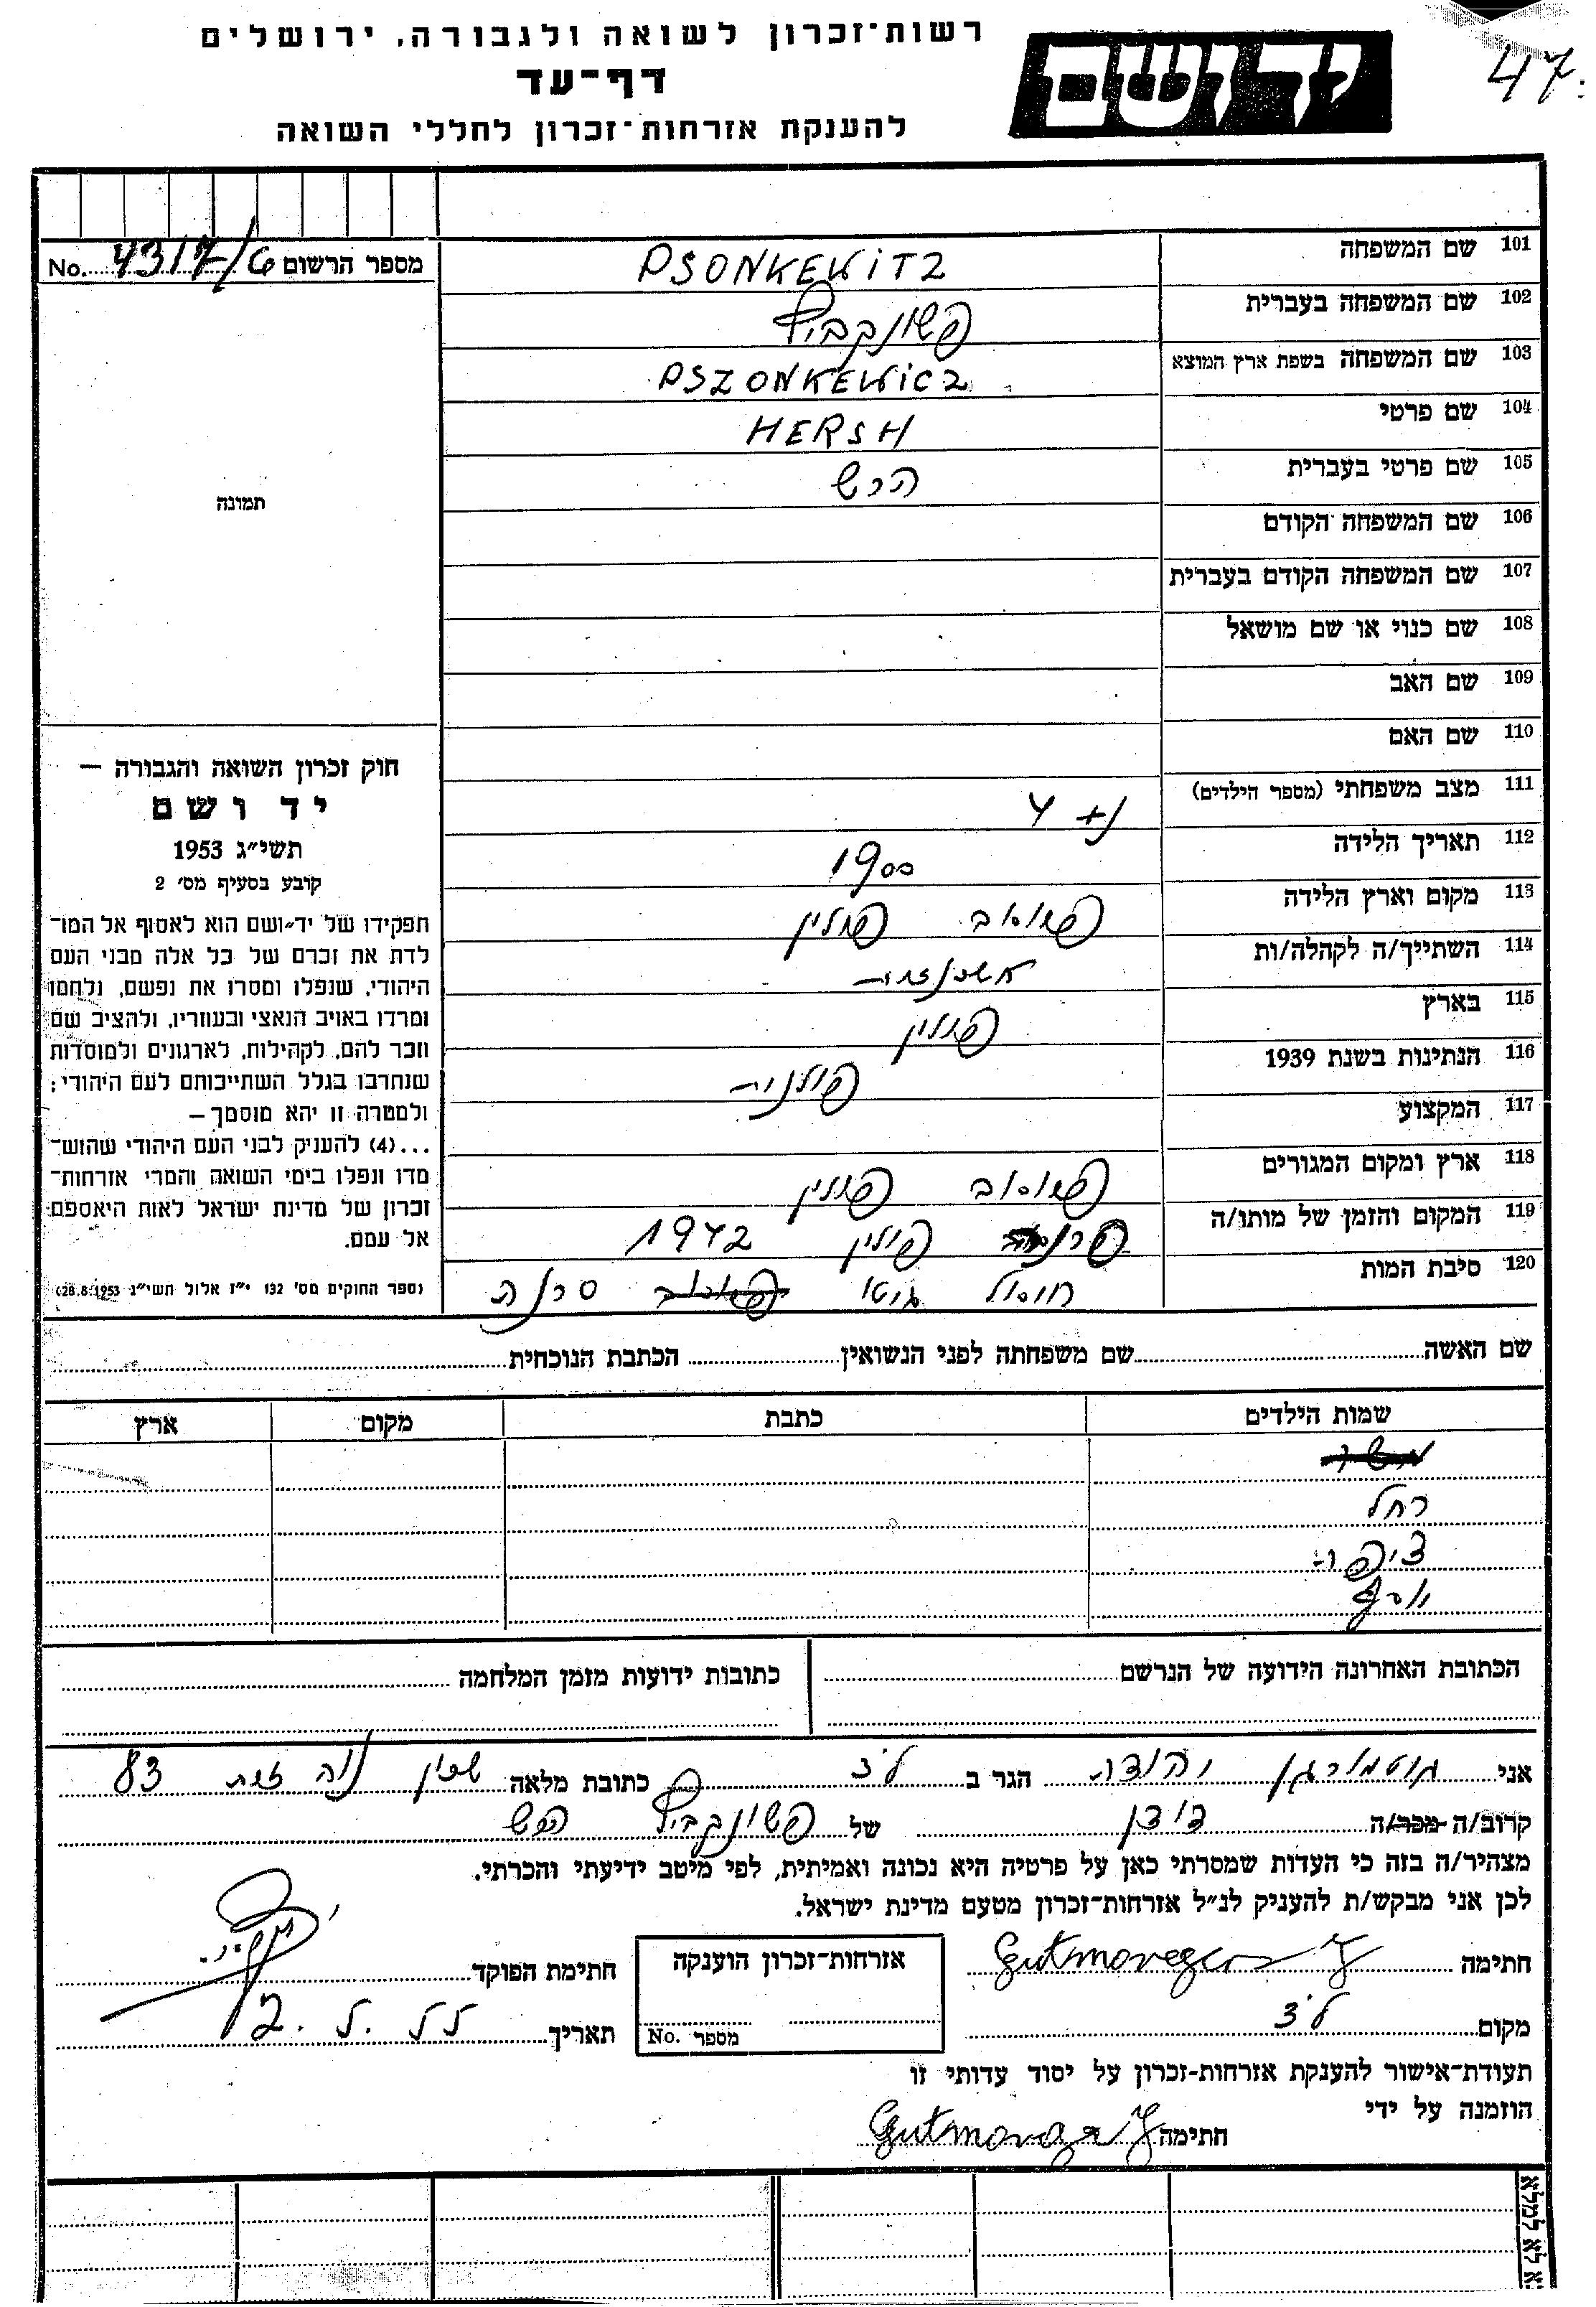 רשות־זכרון לשואה ולגבורה, ירושלים
דף־עד
להענקת אזרחות־זכרון לחללי השואה
ידושם
47
מספר הרשום 4317/6 No.
101 שם המשפחה PSONKEWITZ
102 שם המשפחה בעברית פשונקביץ
103 שם המשפחה בשפת ארץ המוצא PSZONKEWICZ
104 שם פרטי HERSH
105 שם פרטי בעברית הרש
106 שם המשפחה הקודם
107 שם המשפחה הקודם בעברית
108 שם כנוי או שם מושאל
109 שם האב
110 שם האם
111 מצב משפחתי (מספר הילדים) נ+ 4
112 תאריך הלידה 1900
113 מקום וארץ הלידה פולין
114 השתייך/ה לקהלה/ות
115 בארץ פולין
116 הנתינות בשנת 1939 פולנית
117 המקצוע
118 ארץ ומקום המגורים פולין
119 המקום והזמן של מותו/ה פולין 1942
120 סיבת המות חיסול גיטו סרנה
תמונה
חוק זכרון השואה והגבורה —
יד ושם
תשי״ג 1953
קובע בסעיף מס׳ 2
תפקידו של יד״ושם הוא לאסוף אל המו־
לדת את זכרם של כל אלה מבני העם
היהודי, שנפלו ומסרו את נפשם, נלחמו
ומרדו באויב הנאצי ובעוזריו, ולהציב שם
וזכר להם, לקהילות, לארגונים ולמוסדות
שנחרבו בגלל השתייכותם לעם היהודי;
ולמטרה זו יהא מוסמך—
...(4) להעניק לבני העם היהודי שהוש־
מדו ונפלו בימי השואה והמרי אזרחות־
זכרון של מדינת ישראל לאות היאספם
אל עמם.
(ספר החוקים מס׳ 132 י״ז אלול תשי״ג 28.8.1953)
שם האשה שם משפחתה לפני הנשואין הכתבת הנוכחית
שמות הילדים כתבת מקום ארץ
רחל
ציפה
יוסף
הכתובת האחרונה הידועה של הנרשם כתובות ידועות מזמן המלחמה
אני גוטמורגן יהודה הגר ב כתובת מלאה שכון נוה זית 83
קרוב/ה מכר/ה בן דוד של פשונקביץ הרש
מצהיר/ה בזה כי העדות שמסרתי כאן על פרטיה היא נכונה ואמיתית, לפי מיטב ידיעתי והכרתי.
לכן אני מבקש/ת להעניק לנ״ל אזרחות־זכרון מטעם מדינת ישראל.
חתימה Gutmorgen J אזרחות־זכרון הוענקה חתימת הפוקד
מקום מספר No. תאריך
תעודת־אישור להענקת אזרחות־זכרון על יסוד עדותי זו
הוזמנה על ידי
חתימה
נא לא למלא